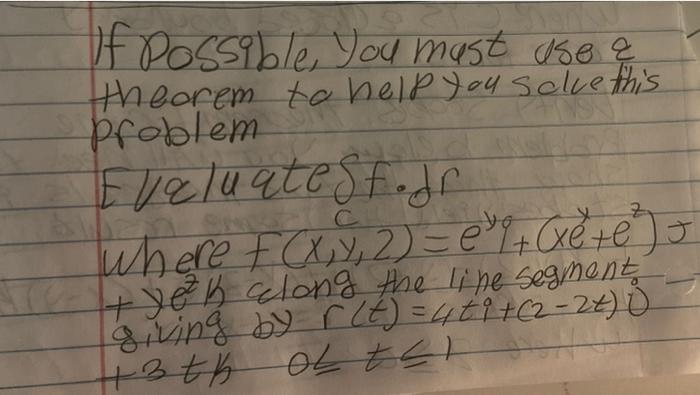 If Possible, You must use a
theorem to help you solve this
problem
Evaluate ∫f.dr
C
where F(x,y,2) = e^y i + (xe^y + e^z) J
+ ye^z k along the line segment
giving by r(t) = 4ti + (2-2t) j
+ 3 t k 0 ≤ t ≤ 1